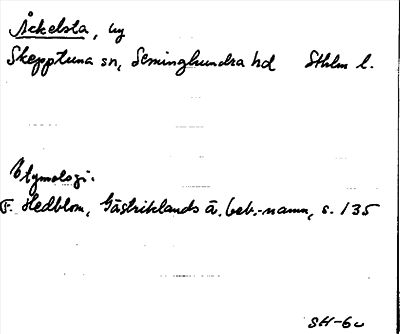 Åckelsta, by
Skepptuna sn, Seminghundra hd Sthlm l.
Etymologi.
F. Hedblom, Gästriklands ä. beb.-namn, s. 135
SH-60